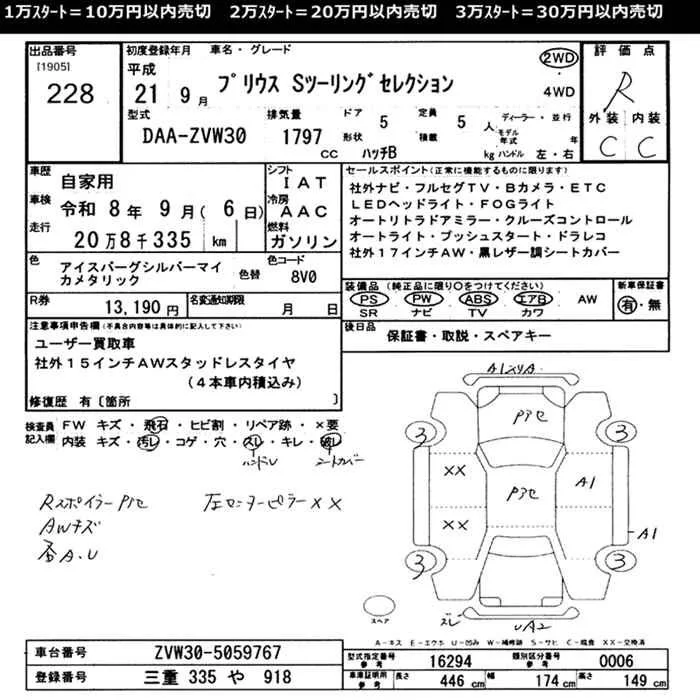 1万ｽﾀｰﾄ=10万円以内売切 2万ｽﾀｰﾄ=20万円以内売切 3万ｽﾀｰﾄ=30万円以内売切
出品番号
[1905]
228
初度登録年月 車名・グレード
平成
21 9月
プリウス Sツーリングセレクション
2WD
4WD
評価点
R
外装 内装
C C
型式 DAA-ZVW30
排気量 1797 CC
ドア 5
形状 ハッチB
定員 5 人
積載 kg
ディーラー・並行
モデル年式 年
ハンドル 左・右
車歴 自家用
車検 令和 8年 9月( 6日)
走行 20万8千335 km
シフト IAT
冷房 AAC
燃料 ガソリン
セールスポイント(正常に機能するものに限ります)
社外ナビ・フルセグTV・Bカメラ・ETC
LEDヘッドライト・FOGライト
オートリトラドアミラー・クルーズコントロール
オートライト・プッシュスタート・ドラレコ
社外17インチAW・黒レザー調シートカバー
色 アイスバーグシルバーマイカメタリック
色替
色コード 8V0
装備品(純正品に限り○をつけてください)
PS PW ABS エアB AW
SR ナビ TV カワ
新車保証書
有・無
R券 13,190円
名変通知期限 月 日
後日品 保証書・取説・スペアキー
注意事項申告欄(不具合内容等は具体的に記入して下さい)
ユーザー買取車
社外15インチAWスタッドレスタイヤ
(4本車内積込み)
修復歴 有〔箇所 〕
検査員記入欄
FW キズ・飛石・ヒビ割・リペア跡・×要
内装 キズ・汚レ・コゲ・穴・スレ・キレ・破レ
ハンドル シートカバー
Rスポイラーアセ 左センターピラーXX
AWキズ
各A.U
A1
アセ
3 3
XX
アセ
A1
XX
A1
3 3
スペア
ズレ
UA2
A-キズ E-エクボ U-凹み W-補修跡 S-サビ C-腐食 XX-交換済
車台番号 ZVW30-5059767
登録番号 三重 335 や 918
型式指定番号 参考 16294
類別区分番号 参考 0006
車庫証明用 参考 長さ 446 cm 幅 174 cm 高さ 149 cm